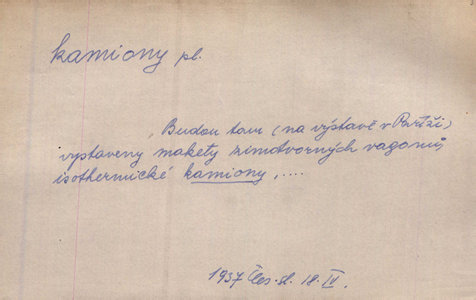 kamiony pl.
Budou tam (na výstavě v Paříži)
vystaveny makety zimotvorných vagonů,
isothermické kamiony, ....
1937 Čes. sl. 18. IV.